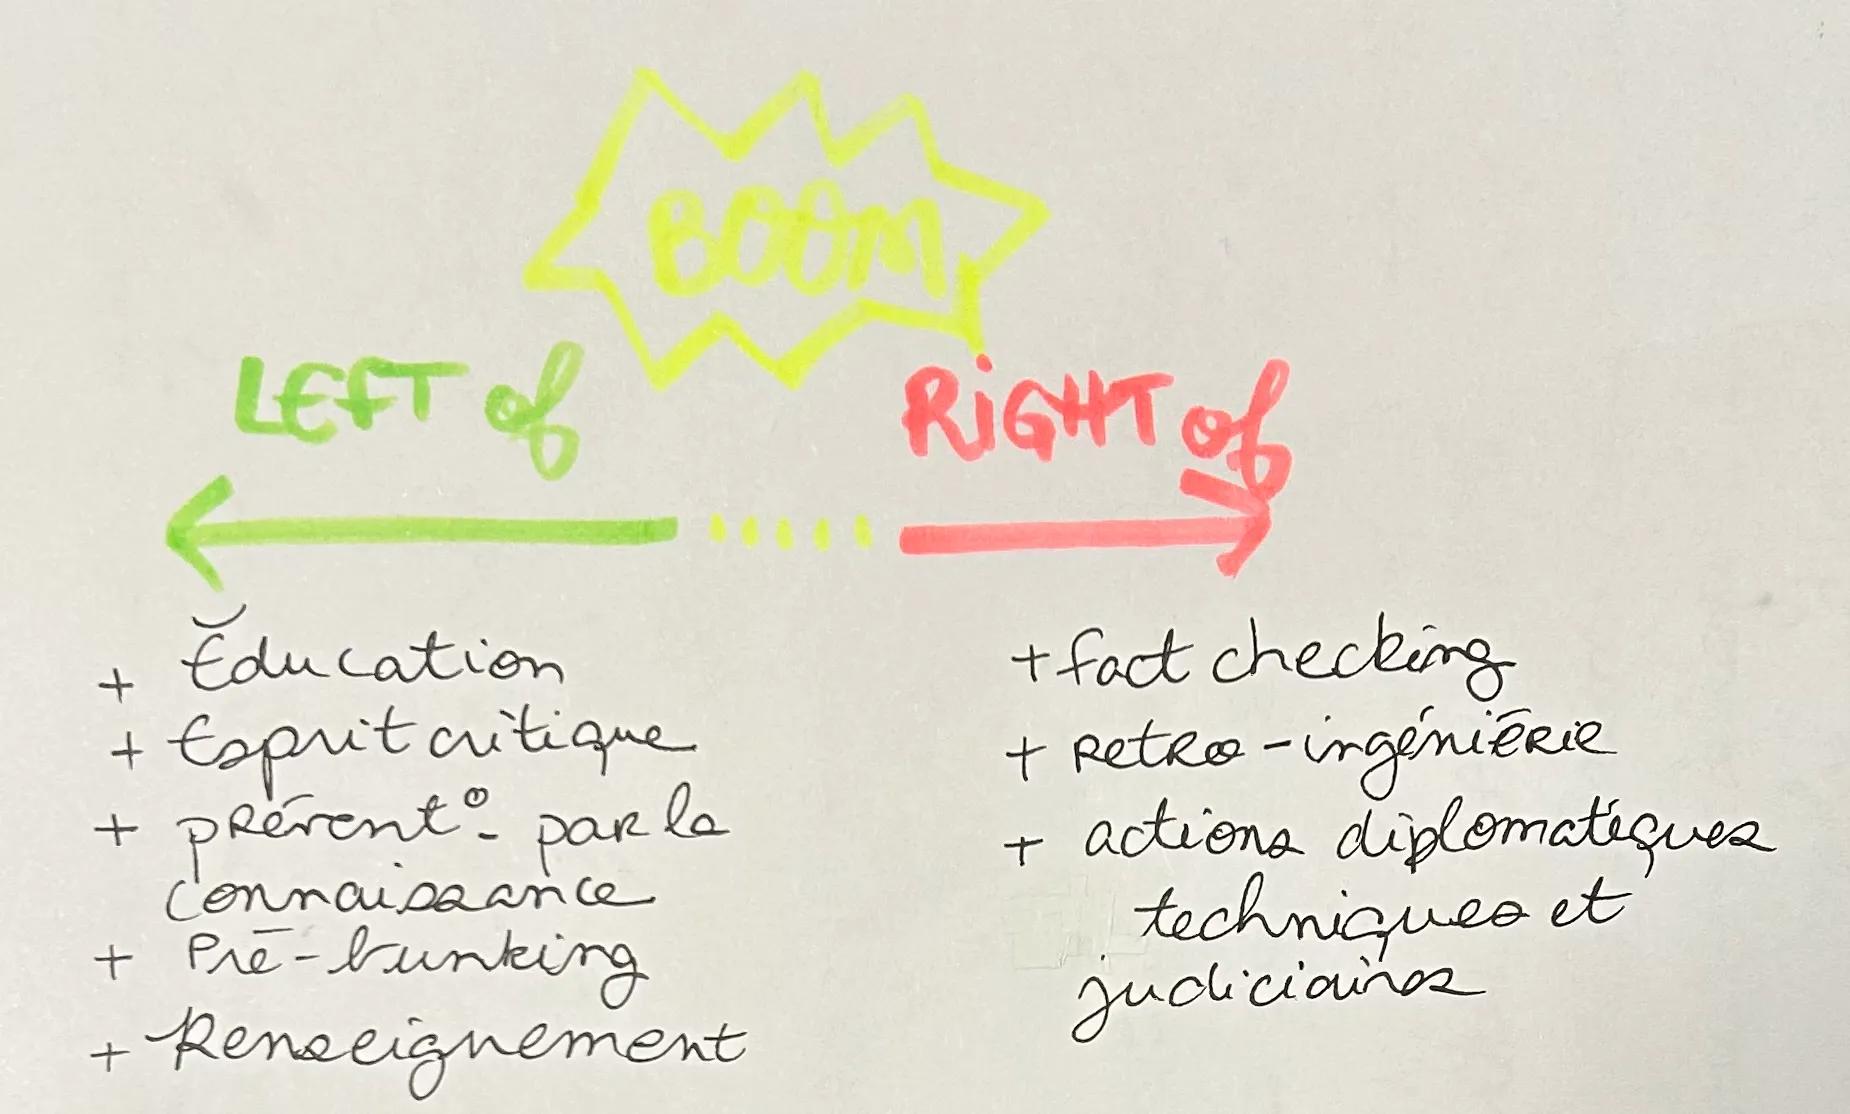 BOOM
LEFT of
RiGHT of
+ Éducation
+ Esprit critique
+ prévent° par la
connaissance
+ Pré-bunking
+ Renseignement
+ fact checking
+ retro-ingéniérie
+ actions diplomatiques
techniques et
judiciaires